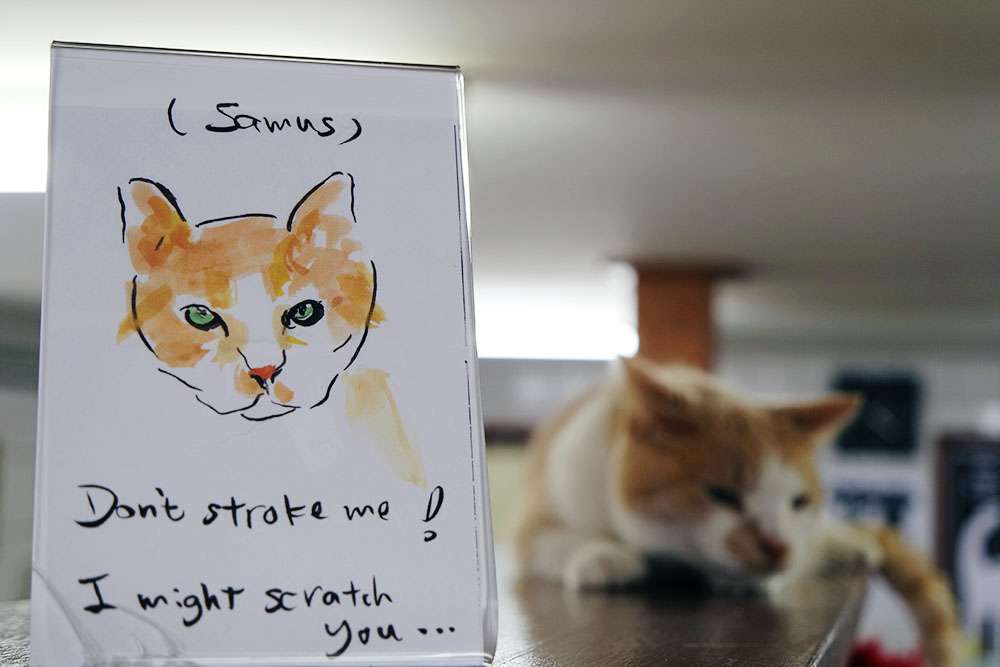 (Samus)
Don't stroke me!
I might scratch
you...